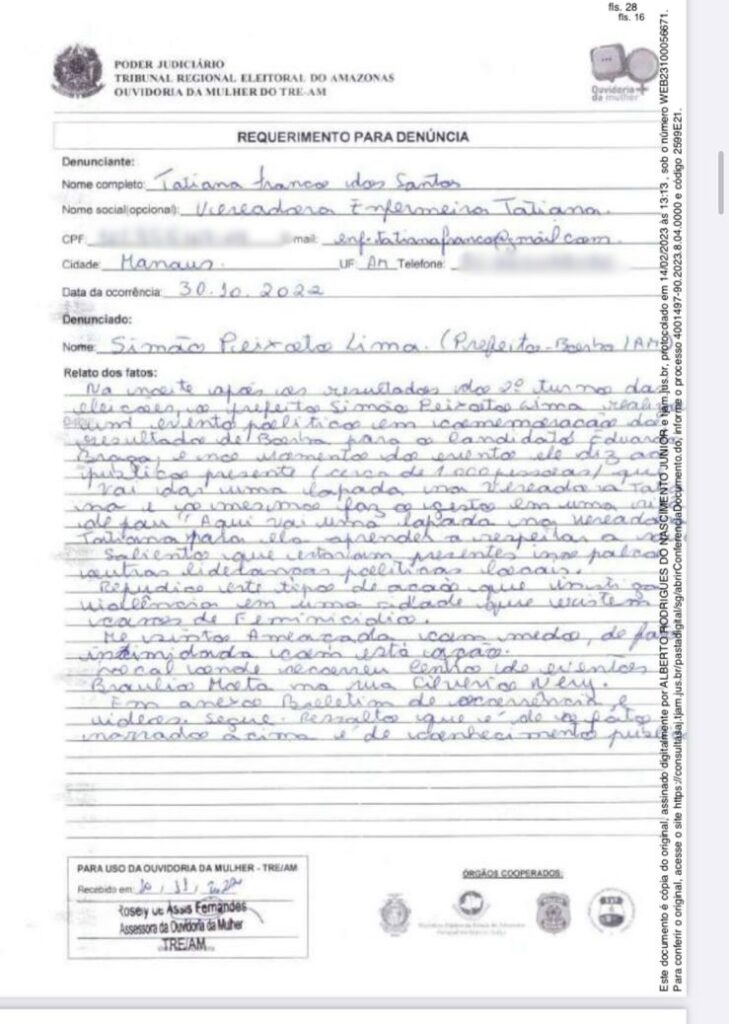 fls. 28
fls. 16
PODER JUDICIÁRIO
TRIBUNAL REGIONAL ELEITORAL DO AMAZONAS
OUVIDORIA DA MULHER DO TRE-AM
Ouvidoria
da mulher
REQUERIMENTO PARA DENÚNCIA
Denunciante:
Nome completo: Tatiana Franco dos Santos
Nome social(opcional): Vereadora Enfermeira Tatiana.
CPF mail: enf.tatianafranco@gmail.com.
Cidade: Manaus. UF: AM Telefone:
Data da ocorrência: 30.10.2022
Denunciado:
Nome: Simão Peixoto Lima. (Prefeito-Borba/AM
Relato dos fatos:
Na noite após os resultados do 2º turno das
eleicoes, o prefeito Simão Peixoto Lima realiz
um evento político em comemoracao do
resultado de Borba para o Candidato Eduard
Braga, e no momento do evento ele diz ao
público presente (cerca de 1.000 pessoas) que
Vai das uma lapada na Vereadora Tat
na e o mesmo faz o gesto em uma
de pau "Aqui vai uma lapada na Veread
Tatiana para ela aprender a respeitar a
Saliento que estavam presentes no palco
outras lideranças políticas locais.
Repudio este tipo de acão que instiga
violência em uma cidade que existem
casos de Feminicídio.
Me sinto Ameaçada com medo, de fa
intimidada com está acão.
Local onde ocorreu Centro de eventos
Braulio Mota na rua Cilverio Nery.
Em anexo Boletim de ocorrência e
videos. Segue. Ressalto que é de o fato
narrado acima é de conhecimento públi
PARA USO DA OUVIDORIA DA MULHER - TRE/AM
Recebido em: 10, 11, 2022
Rosely de Assis Fernandes
Assessora da Ouvidoria da Mulher
TRE/AM
ÓRGÃOS COOPERADOS:
Este documento é cópia do original, assinado digitalmente por ALBERTO RODRIGUES DO NASCIMENTO JUNIOR e tjam.jus.br, protocolado em 14/02/2023 às 13:13 , sob o número WEB23100056671.
Para conferir o original, acesse o site https://consultasaj.tjam.jus.br/pastadigital/sg/abrirConferenciaDocumento.do, informe o processo 4001497-90.2023.8.04.0000 e código 2599E21.